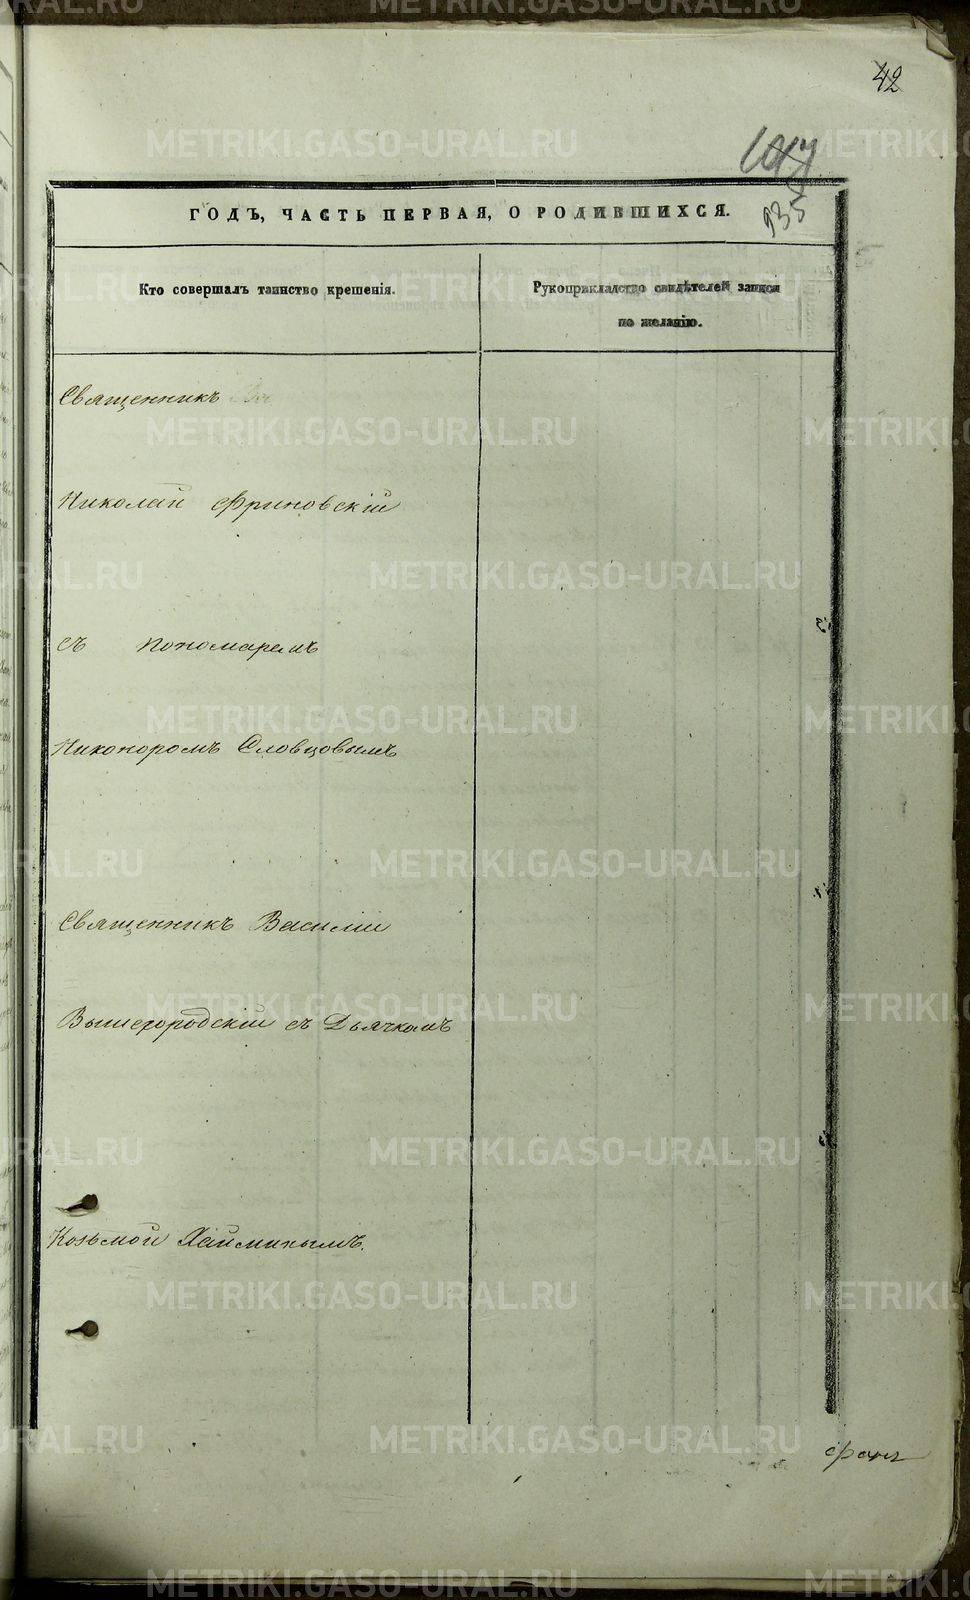 42
135
ГОДЪ, ЧАСТЬ ПЕРВАЯ, О РОДИВШИХСЯ.
Кто совершалъ таинство крещенія.
Рукоприкладство свидѣтелей записи
по желанію.
Священникъ
Николай Фриновскій
съ Пономаремъ
Никоноромъ Словцовымъ
Священникъ Василій
Вышегородскій съ Дьячкомъ
Козьмой Хайминымъ.
METRIKI.GASO-URAL.RU